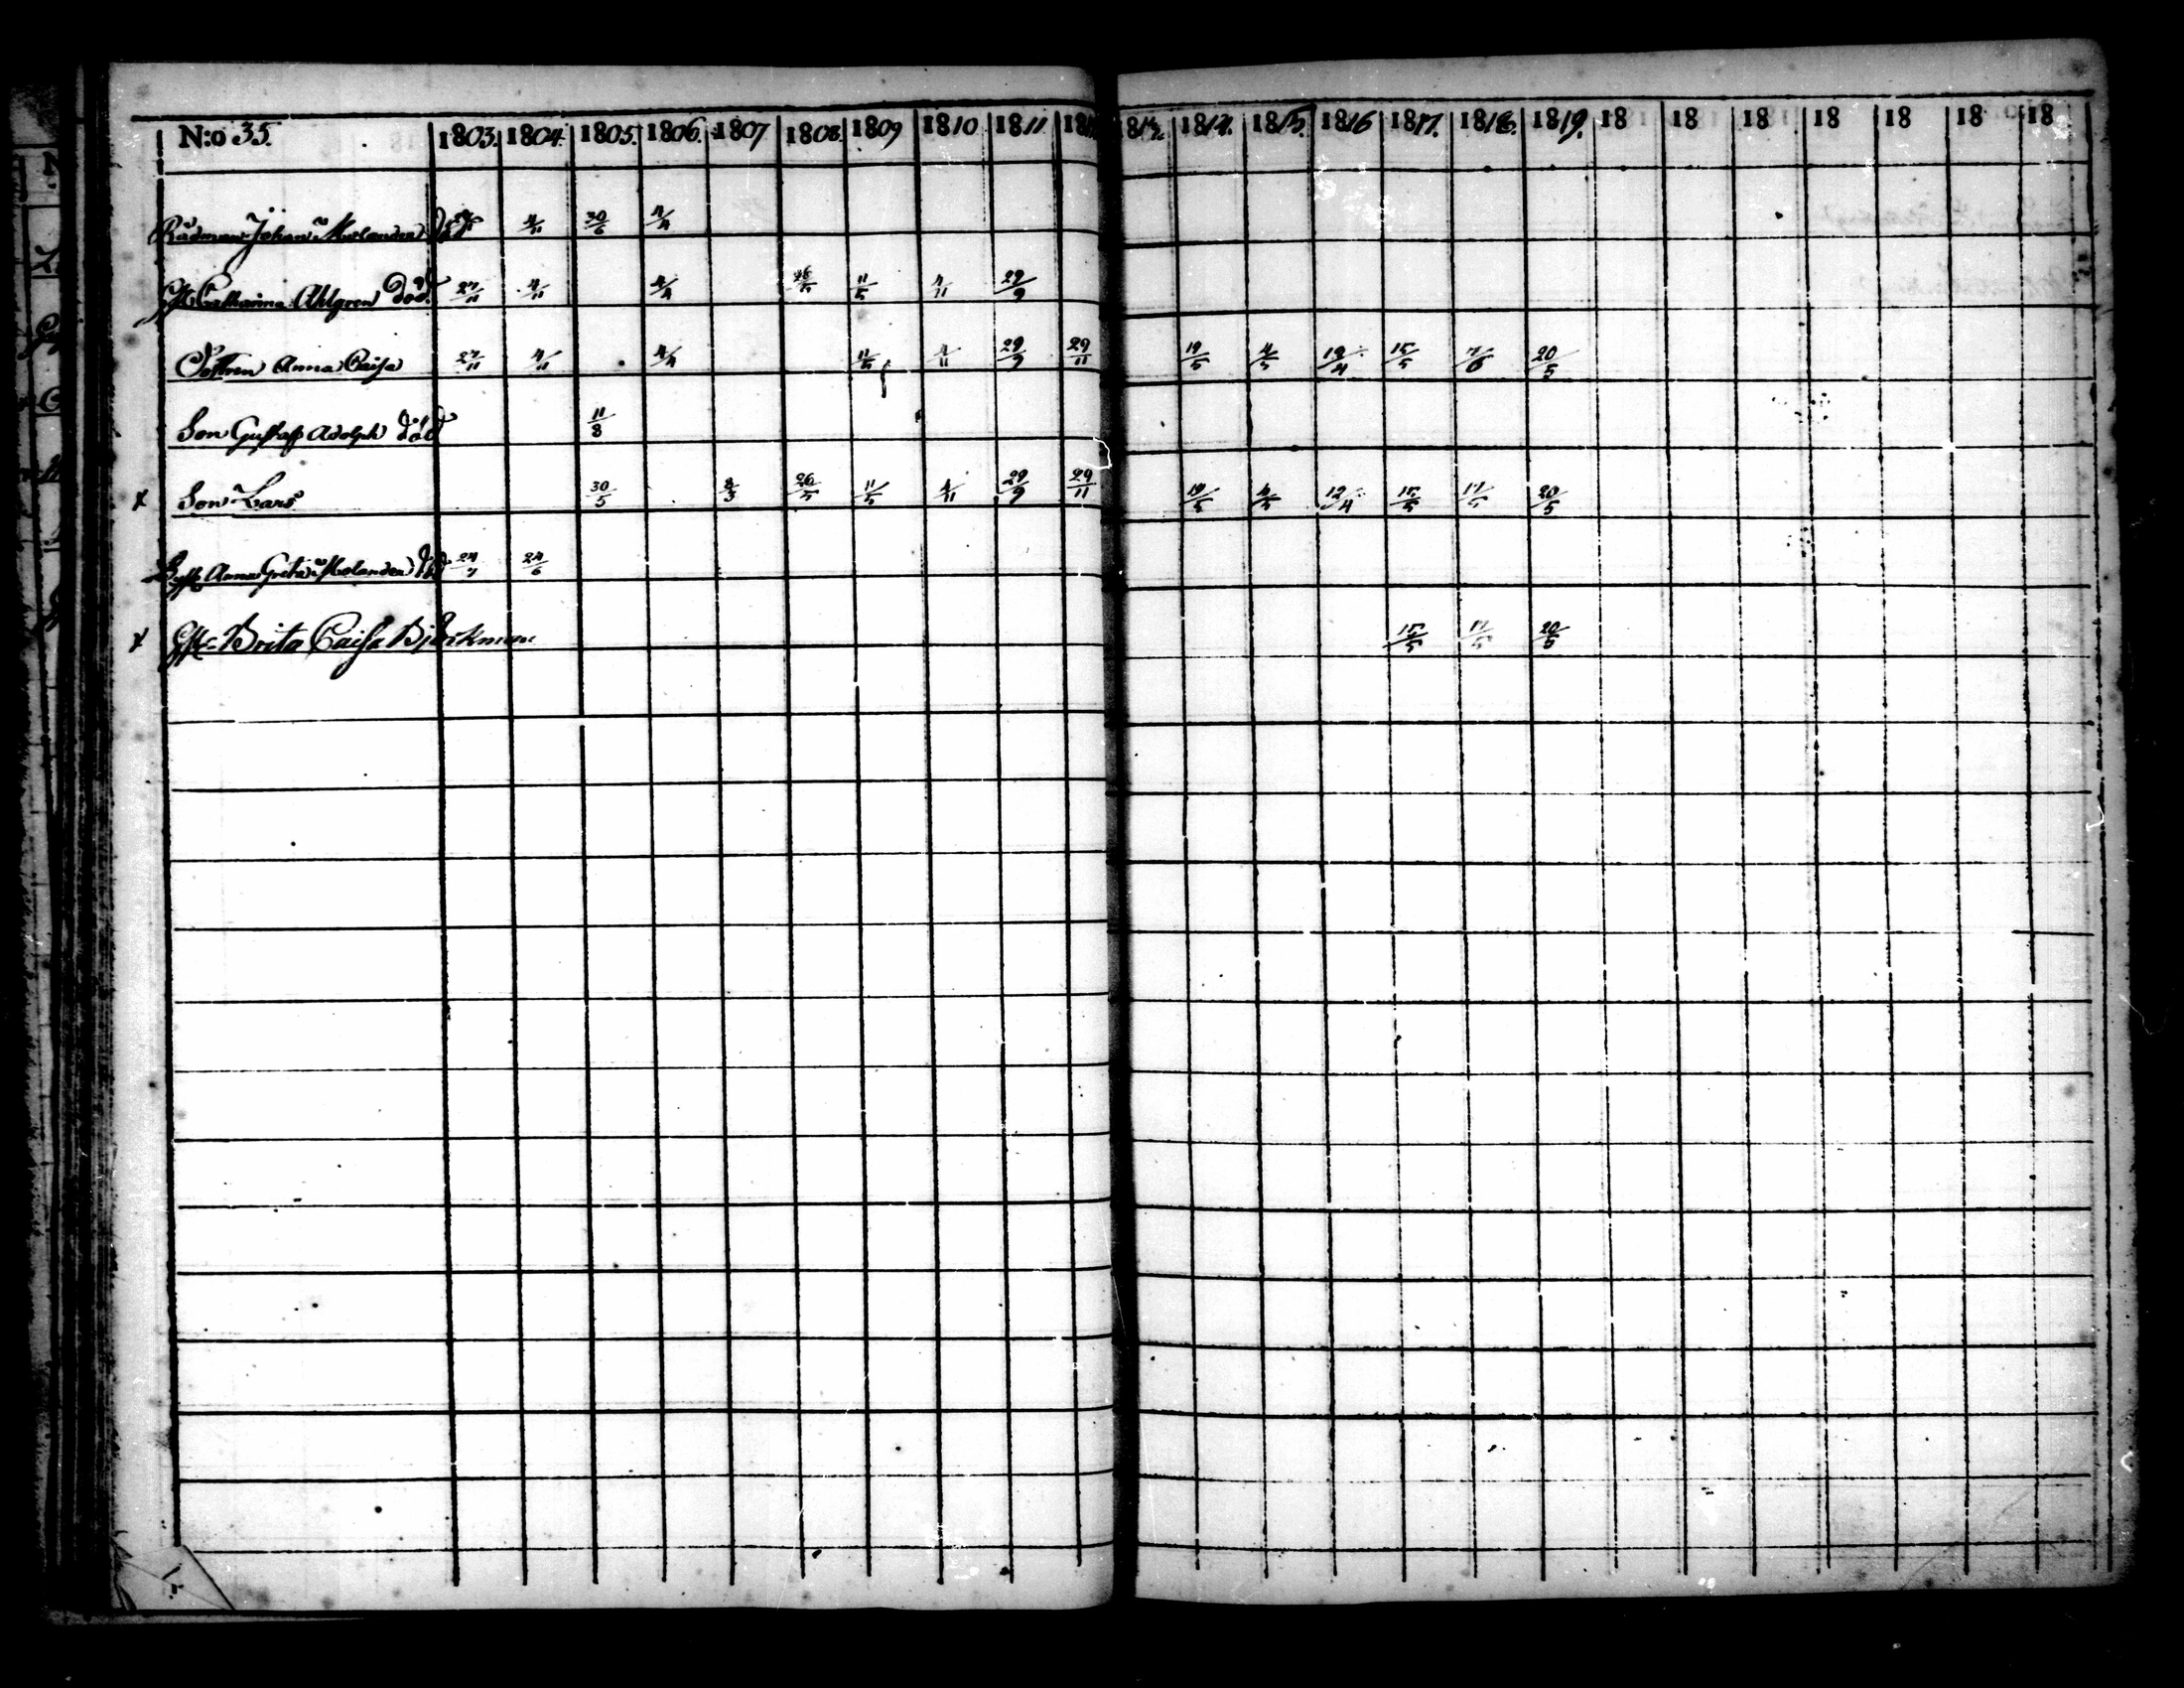 N:o 35. 1803. 1804. 1805. 1806. 1807 1808. 1809 1810 1811 18 18 1814. 1815. 1816 1817. 1818. 1819. 18 18 18 18 18 18 18
Rådman Johan Molander död 4/11 30/6 4/4
Catharina Ahlgren död. 27/11 4/11 4/4 11/5 4/11 29/9
Dottren Anna Caisa 27/11 4/11 4/4 11/5 4/11 29/9 29/11 19/5 4/5 12/4 15/5 7/6 20/5
Son Gustaf Adolph död 11/8
x Son Lars 30/5 26/5 11/5 4/11 29/9 29/11 19/5 4/5 12/4 15/5 17/5 20/5
Anna Greta Molander död 24/7 24/6
x Brita Caisa Björkman 15/5 17/5 20/5